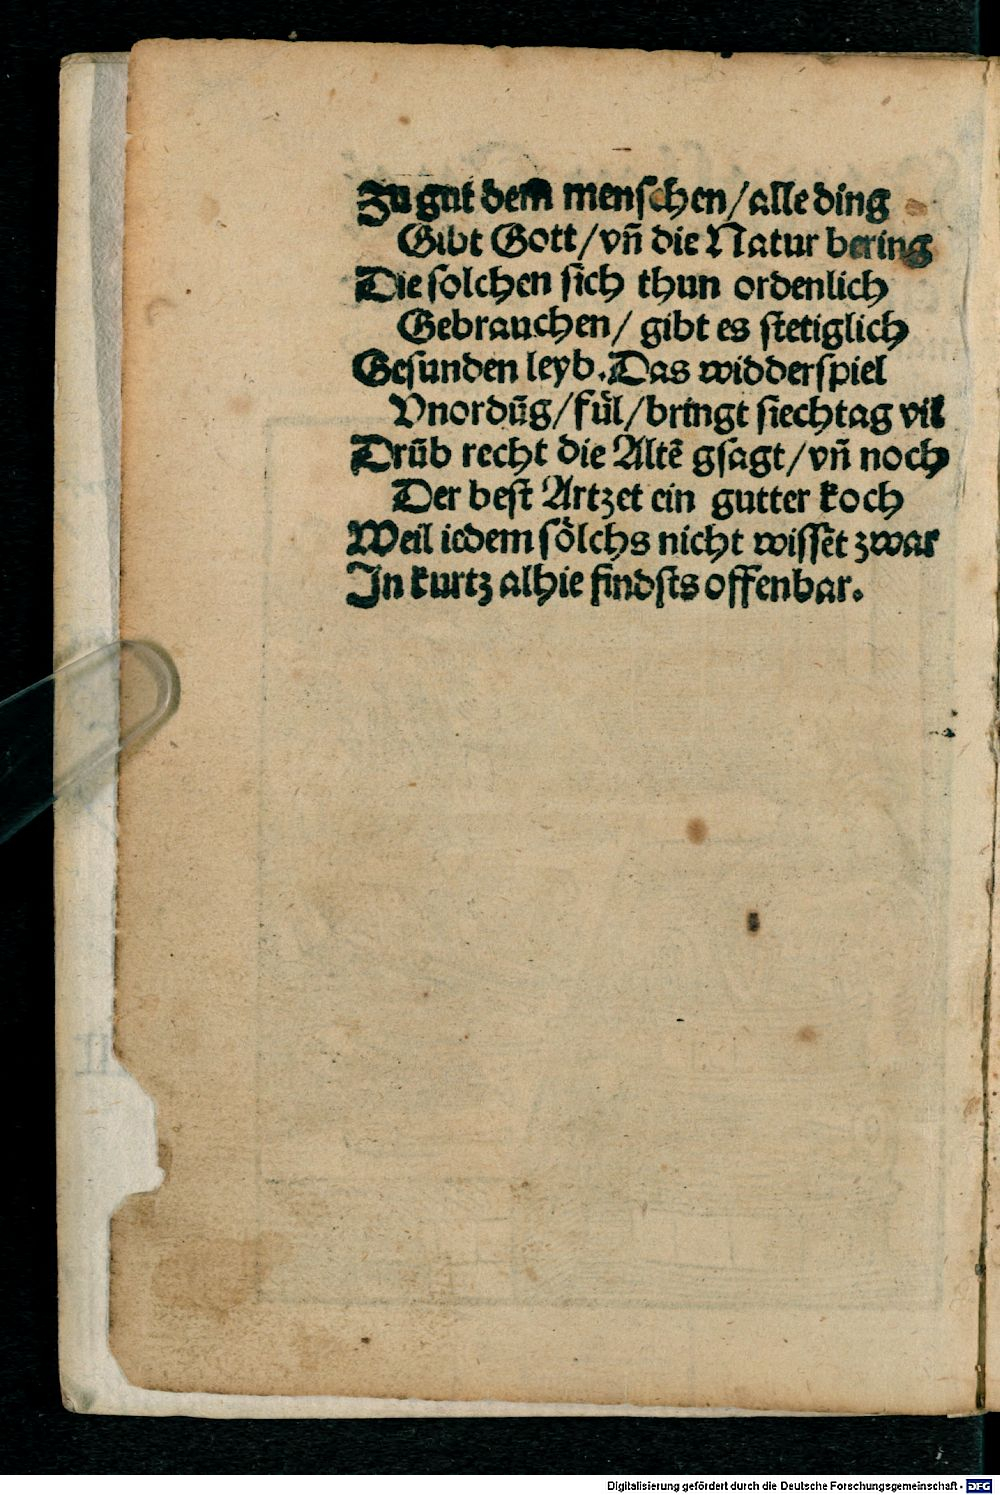 Zu gut dem menschen / alle ding
Gibt Gott / vñ die Natur bering
Die solchen sich thun ordenlich
Gebrauchen / gibt es stetiglich
Gesunden leyb. Das widderspiel
Vnordũg / fül / bringt siechtag vil
Drũb recht die Altẽ gsagt / vñ noch
Der best Artzet ein gutter koch
Weil iedem sölchs nicht wissẽt zwar
In kurtz alhie findsts offenbar.
Digitalisierung gefördert durch die Deutsche Forschungsgemeinschaft - DFG